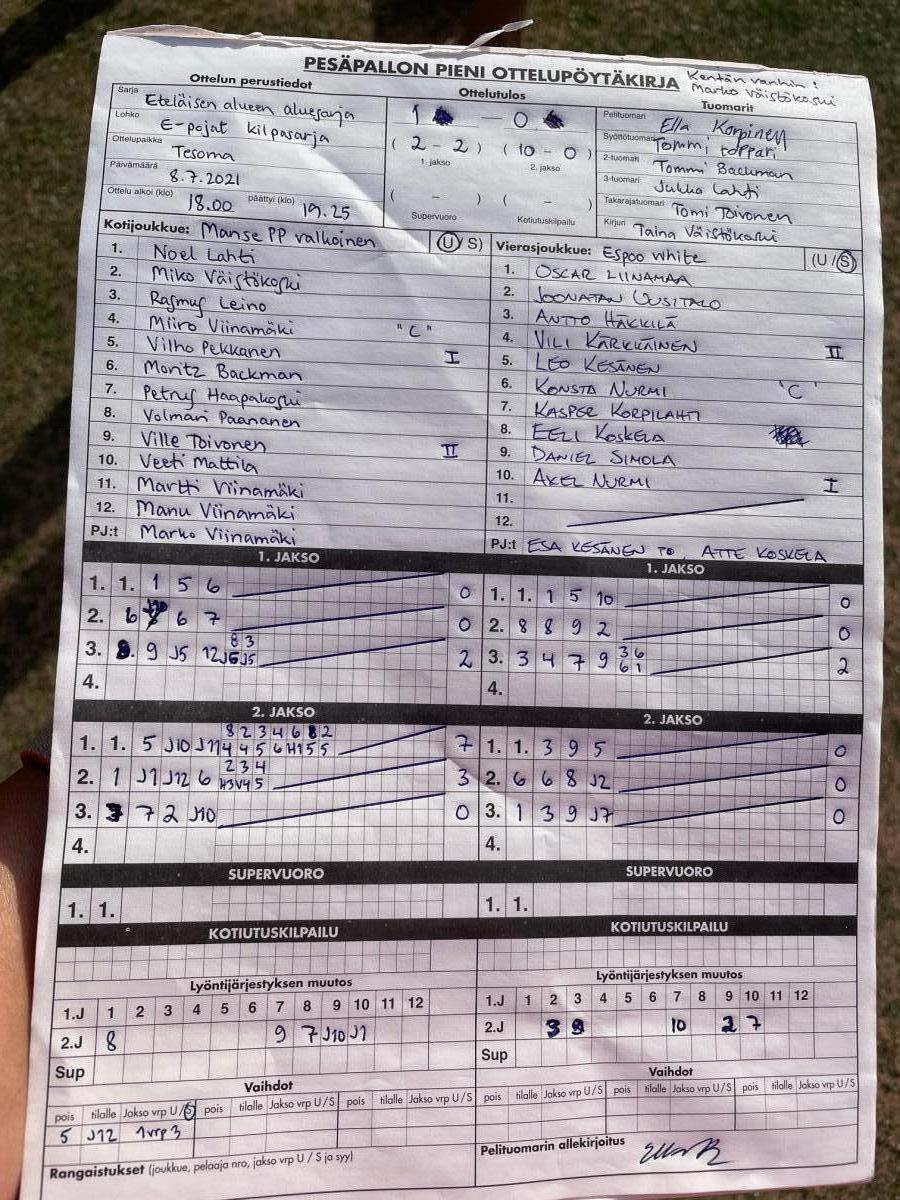 PESÄPALLON PIENI OTTELUPÖYTÄKIRJA
Kentän vanhin:
Marko Väistökoski
Ottelun perustiedot
Sarja Eteläisen alueen aluesarja
Lohko E-pojat kilpasarja
Ottelupaikka Tesoma
Päivämäärä 8.7.2021
Ottelu alkoi (klo) 18.00 päättyi (klo) 19.25
Ottelutulos
1 – 0
( 2 – 2 ) ( 10 – 0 )
1. jakso 2. jakso
( – ) ( – )
Supervuoro Kotiutuskilpailu
Tuomarit
Pelituomari Ella Korpinen
Syöttötuomari Tommi Toppari
2-tuomari Tommi Backman
3-tuomari Jukka Lahti
Takarajatuomari Tomi Toivonen
Kirjuri Taina Väistökoski
Kotijoukkue: Manse PP valkoinen (U/S)
1. Noel Lahti
2. Miko Väistökoski
3. Rasmus Leino
4. Miiro Viinamäki "C"
5. Vilho Pekkanen I
6. Moritz Backman
7. Petrus Haapakoski
8. Volmari Paananen
9. Ville Toivonen II
10. Veeti Mattila
11. Martti Viinamäki
12. Manu Viinamäki
PJ:t Marko Viinamäki
Vierasjoukkue: Espoo White (U/S)
1. OSCAR LIINAMAA
2. JOONATAN UUSITALO
3. ANTTO HÄKKILÄ
4. VILI KÄRKKÄINEN II
5. LEO KESÄNEN
6. KONSTA NURMI 'C'
7. KASPER KORPILAHTI
8. EELI KOSKELA
9. DANIEL SIMOLA
10. AXEL NURMI I
11.
12.
PJ:t ESA KESÄNEN TO, ATTE KOSKELA
1. JAKSO
1. 1. 1 5 6 0
2. 6 6 7 0
8 3
3. 9 J5 12 J5 2
4.
1. JAKSO
1. 1. 1 5 10 0
2. 8 8 9 2 0
3 6
3. 3 4 7 9 6 1 2
4.
2. JAKSO
8 2 3 4 6 8 2
1. 1. 5 J10 J11 4 4 5 6 H1 5 5 7
2 3 4
2. 1 J1 J12 6 H3 V4 5 3
3. 7 2 J10 0
4.
2. JAKSO
1. 1. 3 9 5 0
2. 6 6 8 J2 0
3. 1 3 9 J7 0
4.
SUPERVUORO
1. 1.
SUPERVUORO
1. 1.
KOTIUTUSKILPAILU
KOTIUTUSKILPAILU
Lyöntijärjestyksen muutos
1.J 1 2 3 4 5 6 7 8 9 10 11 12
2.J 8 9 7 J10 J1
Sup
Lyöntijärjestyksen muutos
1.J 1 2 3 4 5 6 7 8 9 10 11 12
2.J 3 10 2 7
Sup
Vaihdot
pois tilalle Jakso vrp U/S pois tilalle Jakso vrp U/S pois tilalle Jakso vrp U/S
5 J12 1vrp3
Vaihdot
pois tilalle Jakso vrp U/S pois tilalle Jakso vrp U/S pois tilalle Jakso vrp U/S
Rangaistukset (joukkue, pelaaja nro, jakso vrp U / S ja syy)
Pelituomarin allekirjoitus